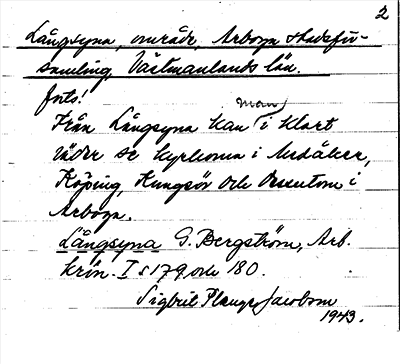 2
Långsyna, område, Arboga stadsför-
samling, Västmanlands län.
forts!
Från Långsyna kan man i klart
väder se kyrkorna i Medåker,
Köping, Kungsör och dessutom i
Arboga.
Långsyna G. Bergström, Arb.
krön. I s 179 och 180.
Sigbrit Plange Jacobson
1943.